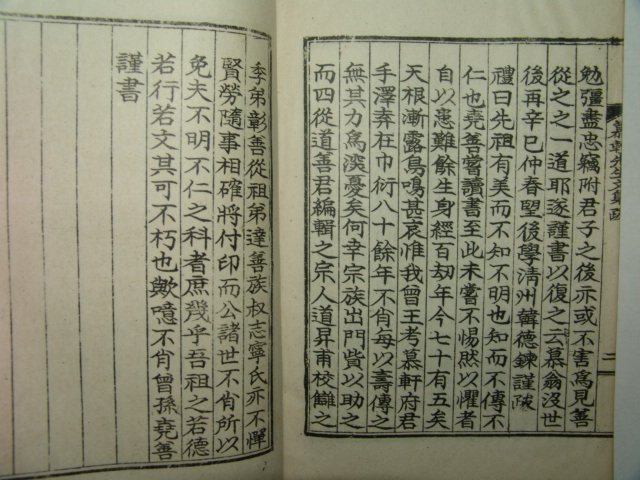 勉彊盡忠竊附君子之後亦或不害爲見善
從之之一道耶遂謹書以復之云慕翁沒世
後再辛巳仲春望後學淸州韓德鍊謹跋
禮曰先祖有美而不知不明也知而不傳不
仁也堯善嘗讀書至此未嘗不惕然以懼者
自以患難餘生身經百劫年今七十有五矣
天根漸露鳥鳴甚哀惟我曾王考慕軒府君
手澤弆在巾衍八十餘年不肖每以壽傳之
無其力爲深憂矣何幸宗族出門貲以助之
而四從道善君編輯之宗人道昇甫校讎之
慕軒先生文集跋
二
季弟彰善從祖弟達善族权志寧氏亦不憚
賢勞隨事相確將付印而公諸世不肖所以
免夫不明不仁之科者庶幾乎吾祖之若德
若行若文其可不朽也歟噫不肖曾孫堯善
謹書